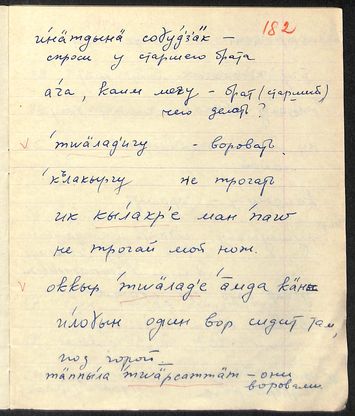 182
и́нӓтдынӓ собудзӓк –
спроси у старшего брата
а́га, каим ме̄гу – брат (старший)
чего делать?
'тшӓлад'игу – воровать
'къ̄лакыргу не трогать
ик кы́лакр'е ман 'паш
не трогай мой нож.
оккыр 'тшӓлад'е 'а̄мда
и́лобын один вор сидит там,
под горой –
тӓппыла 'тшӓрсаттӓт – они
воровали